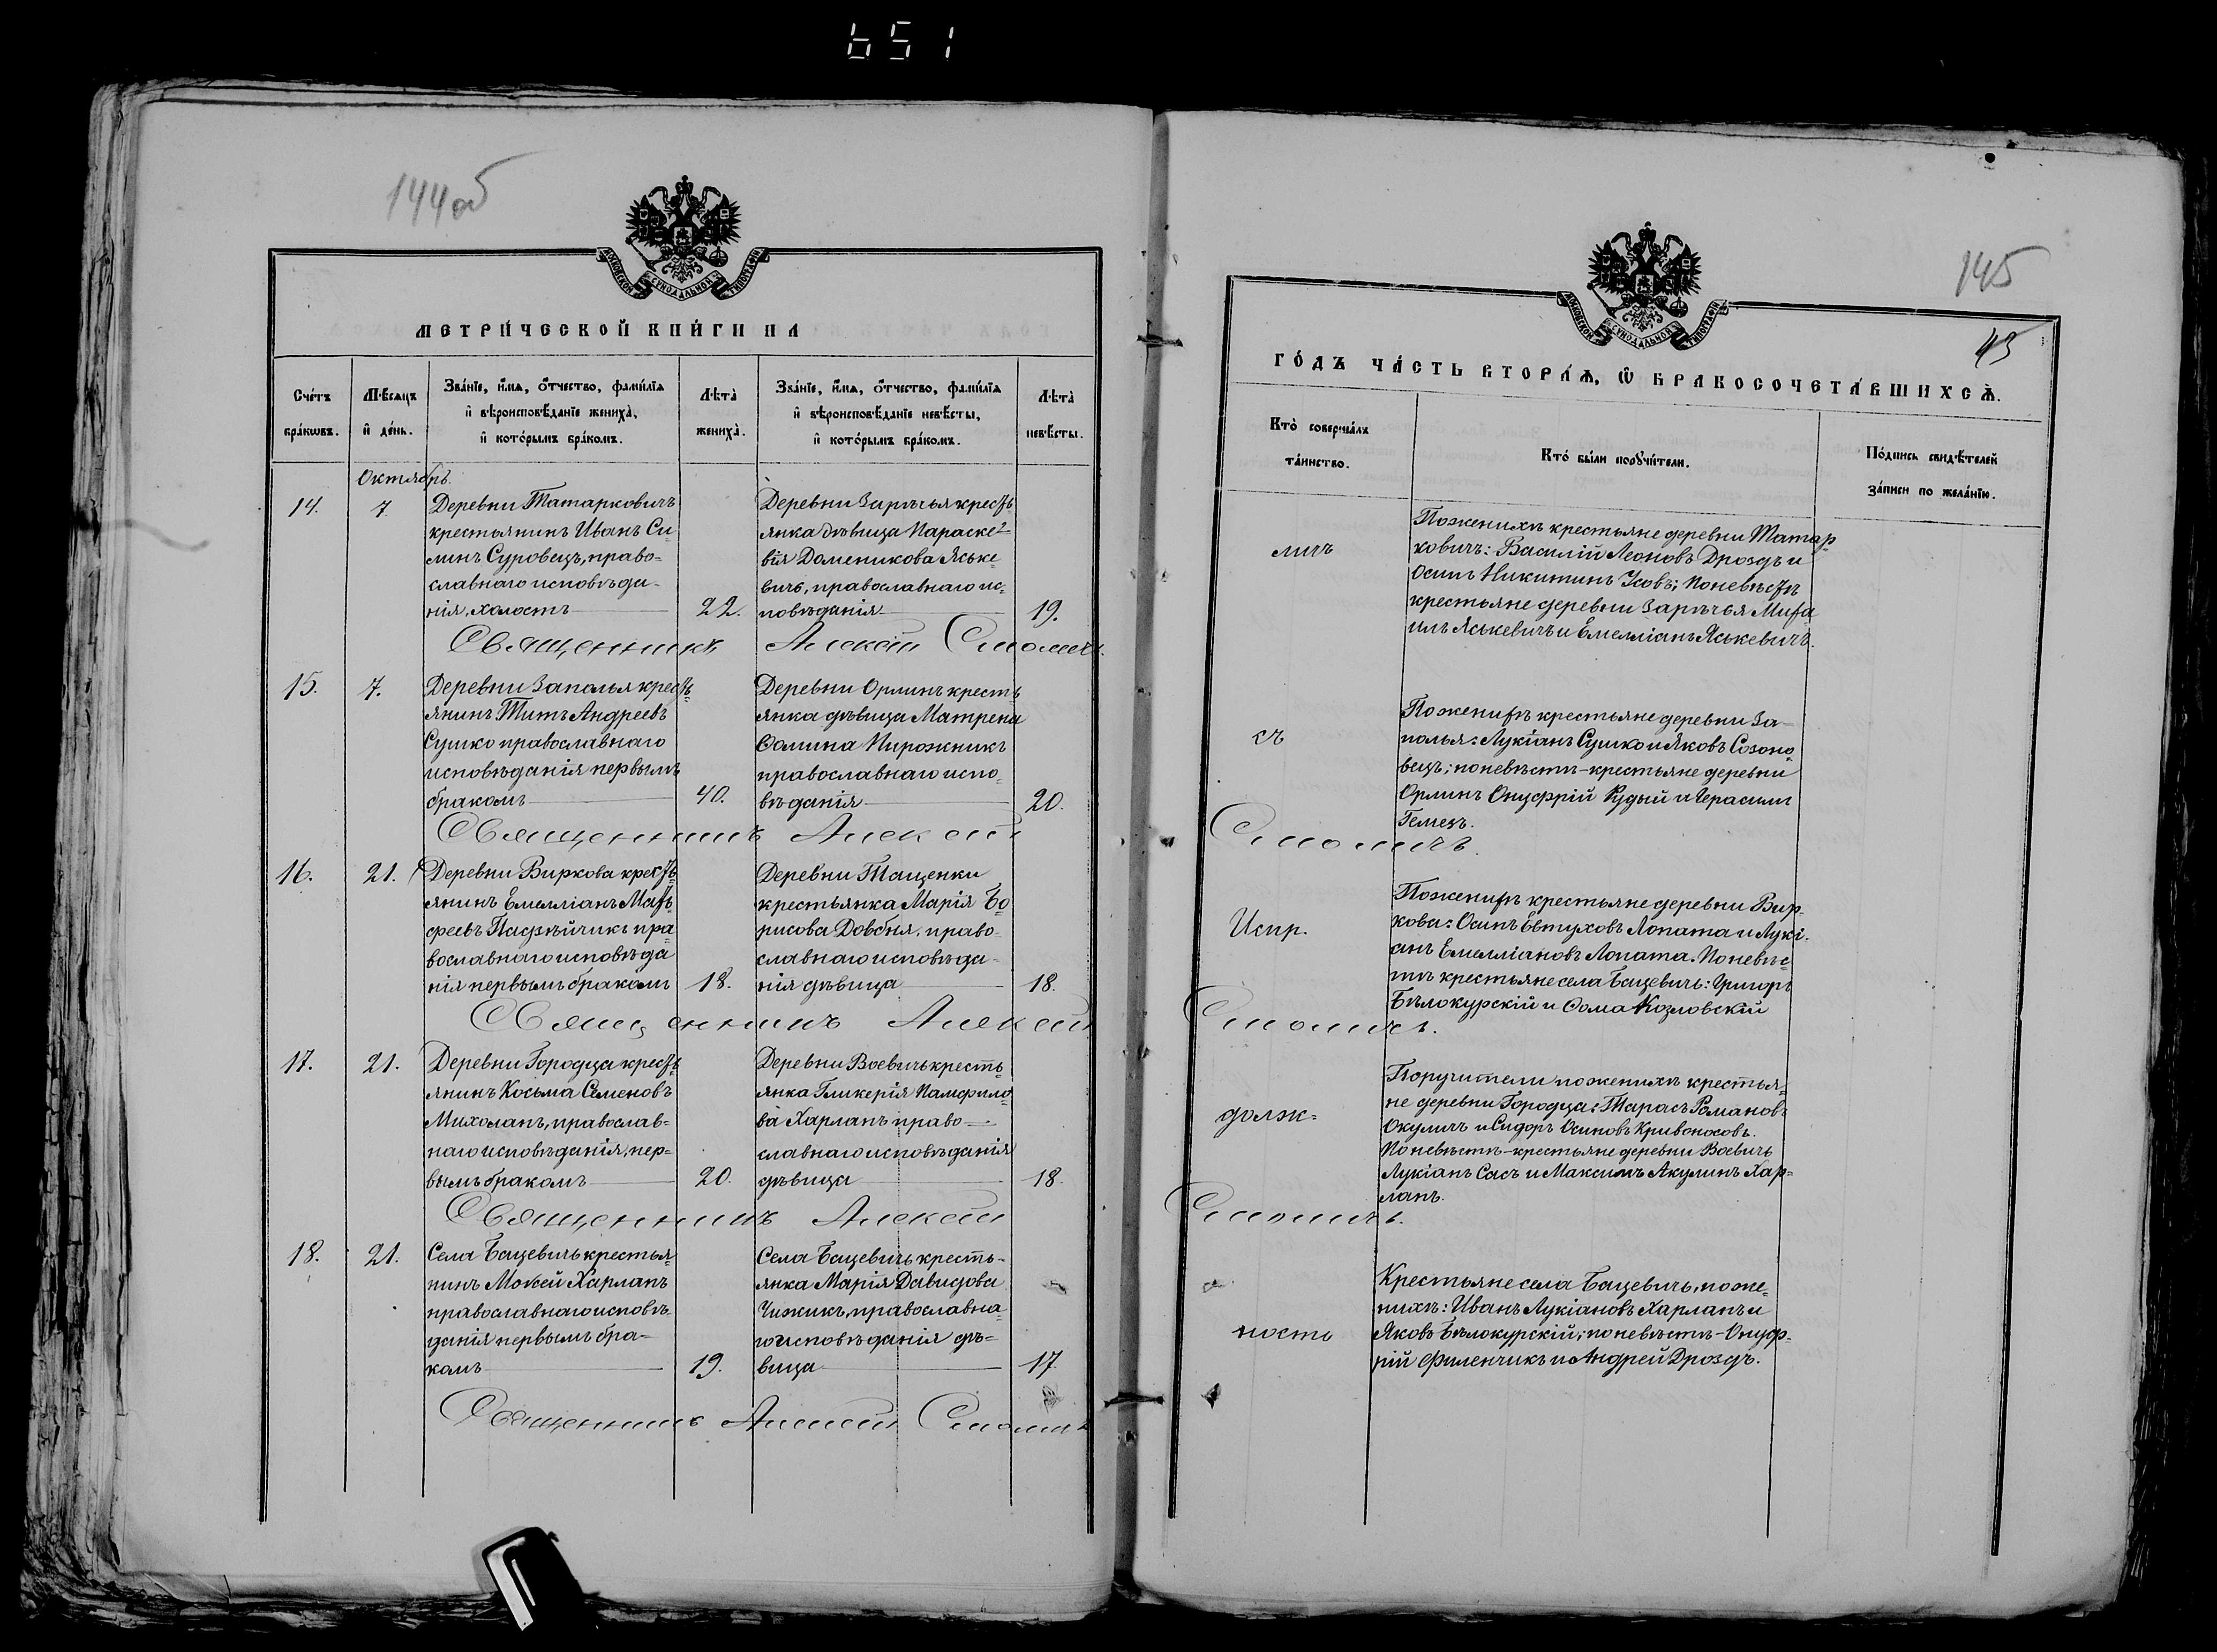 651
144об
МОСКОВСКОЙ СѴНОДАЛЬНОЙ ТИПОГРАФІИ
МЕТРИ́ЧЕСКОЙ КНИ́ГИ НА
Сче́тъ бра́кѡвъ.
Мѣ́сяцъ и҆ де́нь.
Зва́нїе, и҆́мѧ, ѻ҆́тчество, фами́лїѧ
и҆ вѣроисповѣ́данїе жениха̀,
и҆ кото́рымъ бра́комъ.
Лѣ́та̀ жениха̀.
Зва́нїе, и҆́мѧ, ѻ҆́тчество, фами́лїѧ
и҆ вѣроисповѣ́данїе невѣ́сты,
и҆ кото́рымъ бра́комъ.
Лѣ́та̀ невѣ́сты.
Октябрь.
14.
7.
Деревни Татарковичъ
крестьянинъ Иванъ Си-
линъ Суровецъ, право-
славнаго исповѣда-
нія, холостъ
22.
Деревни Зарѣчья кресть-
янка дѣвица Параске-
вія Доменикова Яське-
вичъ, православнаго ис-
повѣданія
19.
Священникъ Алексѣй Смоличъ.
15.
7.
Деревни Заполья кресть-
янинъ Титъ Андреевъ
Сушко православнаго
исповѣданія первымъ
бракомъ
40.
Деревни Орлинъ кресть
янка дѣвица Матрена
Ѳомина Пирожникъ
православнаго испо-
вѣданія
20.
Священникъ Алексѣй
16.
21.
Деревни Виркова кресть-
янинъ Емелліанъ Матѳ-
феевъ Пацѣйчикъ пра-
вославнаго исповѣда
нія первымъ бракомъ
18.
Деревни Тащенки
крестьянка Марія Бо
рисова Довбня, право-
славнаго исповѣда-
нія дѣвица
18.
Священникъ Алексѣй
17.
21.
Деревни Городца кресть-
янинъ Косьма Семеновъ
Михолапъ, православ-
наго исповѣданія, пер-
вымъ бракомъ
20.
Деревни Воевичъ кресть-
янка Гликерія Памфило-
ва Харлапъ право-
славнаго исповѣданія
дѣвица
18.
Священникъ Алексѣй
18.
21.
Села Бацевичъ крестья-
нинъ Моѵсей Харлапъ
православнаго исповѣ-
данія первымъ бра-
комъ
19.
Села Бацевичъ кресть-
янка Марія Давидова
Чижикъ, православна-
го исповѣданія дѣ-
вица
17.
Священникъ Алексѣй Смоличъ
145
43
МОСКОВСКОЙ СѴНОДАЛЬНОЙ ТИПОГРАФІИ
ГО́ДЪ ЧА́СТЬ ВТОРА́Ѧ, Ѽ БРАКОСОЧЕТА́ВШИХСѦ.
Кто̀ соверша́лъ та́инство.
Кто̀ бы́ли порꙋчи́тели.
По́дпись свидѣ́телей
за́писи по жела́нїю.
личъ
По женихѣ крестьяне деревни Татар-
ковичъ: Василій Леоновъ Дроздъ и
Осипъ Никитинъ Усовъ; по невѣстѣ
крестьяне деревни Зарѣчья Миха
илъ Яськевичъ и Емелліанъ Яськевичъ.
съ
По женихѣ крестьяне деревни За-
полья: Лукіанъ Сушко и Яковъ Созоно-
вецъ; по невѣстѣ - крестьяне деревни
Орлинъ Онуфрій Рудый и Герасимъ
Гемезъ.
Смоличъ.
Испр.
По женихѣ крестьяне деревни Вир-
кова: Осипъ Евтуховъ Лопата и Лукі-
анъ Емелліановъ Лопата. По невѣс-
тѣ крестьяне села Бацевичъ: Григоръ
Бѣлокурскій и Ѳома Козловскій
Смоличъ.
долж-
Поручители по женихѣ крестья-
не деревни Городца: Тарасъ Романовъ
Окуличъ и Сидоръ Осиповъ Кривоносовъ.
По невѣстѣ - крестьяне деревни Воевичъ
Лукіанъ Сасъ и Максимъ Акулинъ Хар-
лапъ.
Смоличъ.
ность
Крестьяне села Бацевичъ, по же-
нихѣ: Иванъ Лукіановъ Харлапъ и
Яковъ Бѣлокурскій; по невѣстѣ - Онуф-
рій Филенчикъ и Андрей Дроздъ.